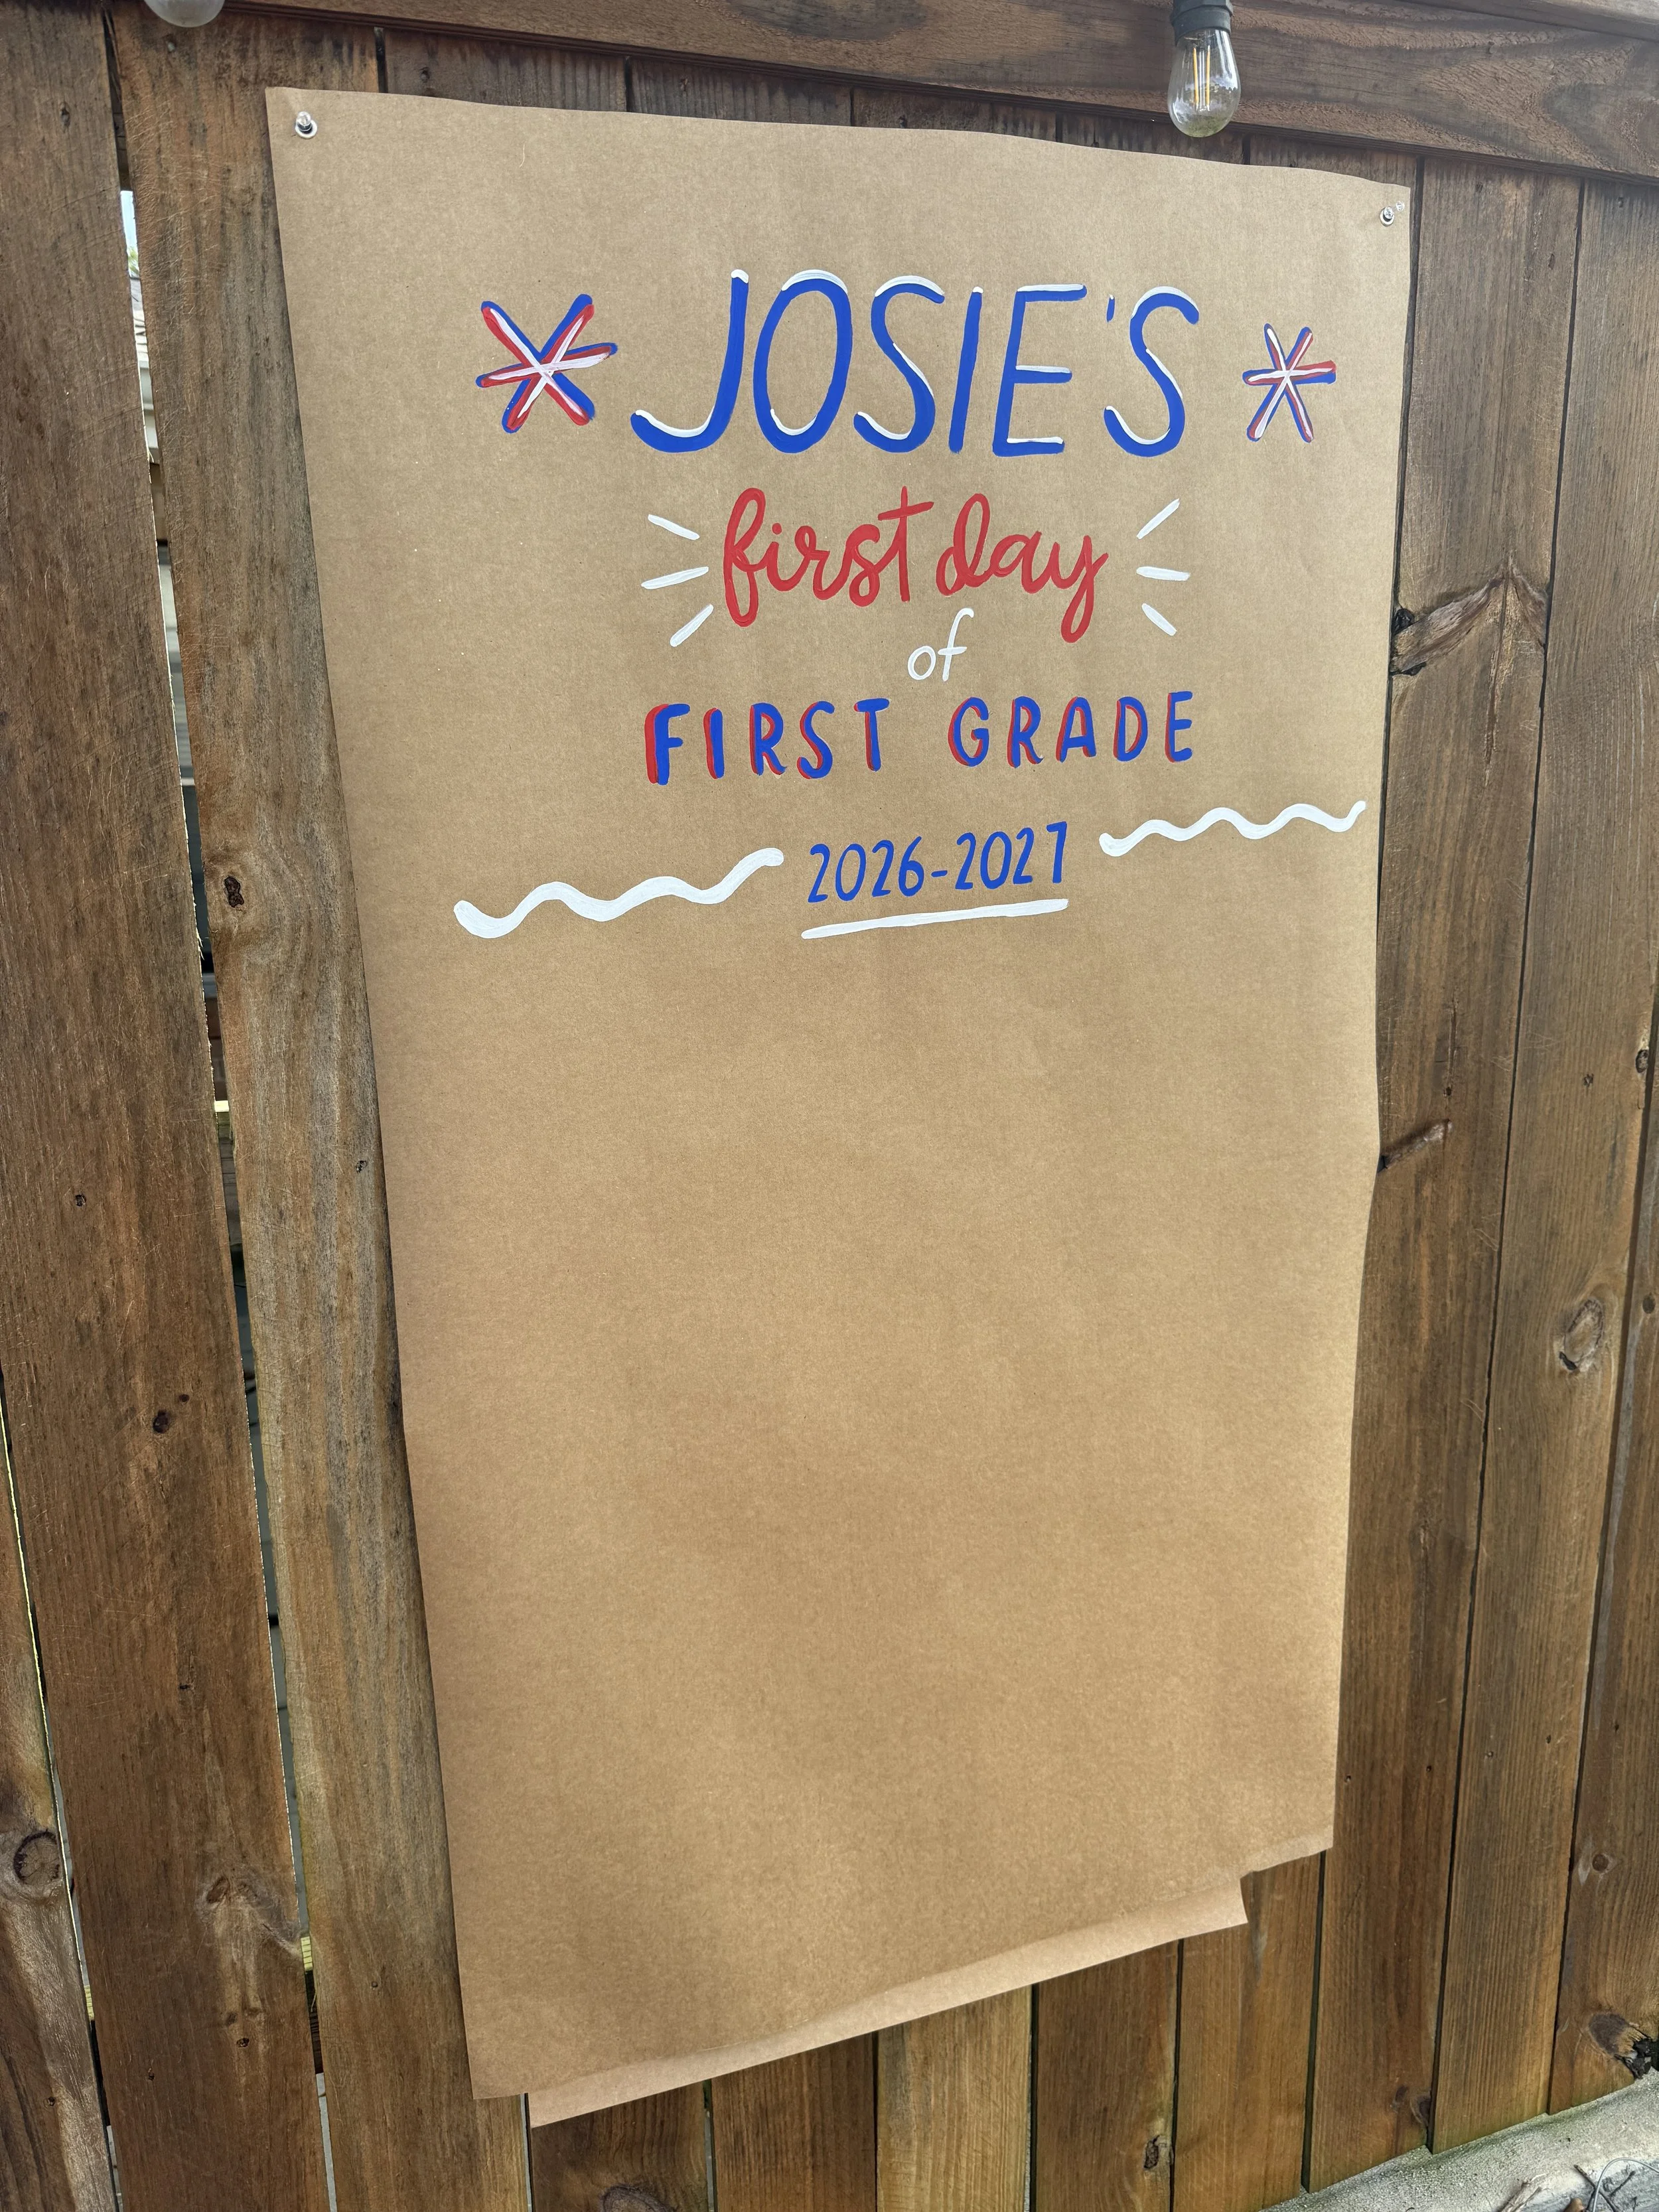 JOSIE'S
first day
of
FIRST GRADE
2026-2027